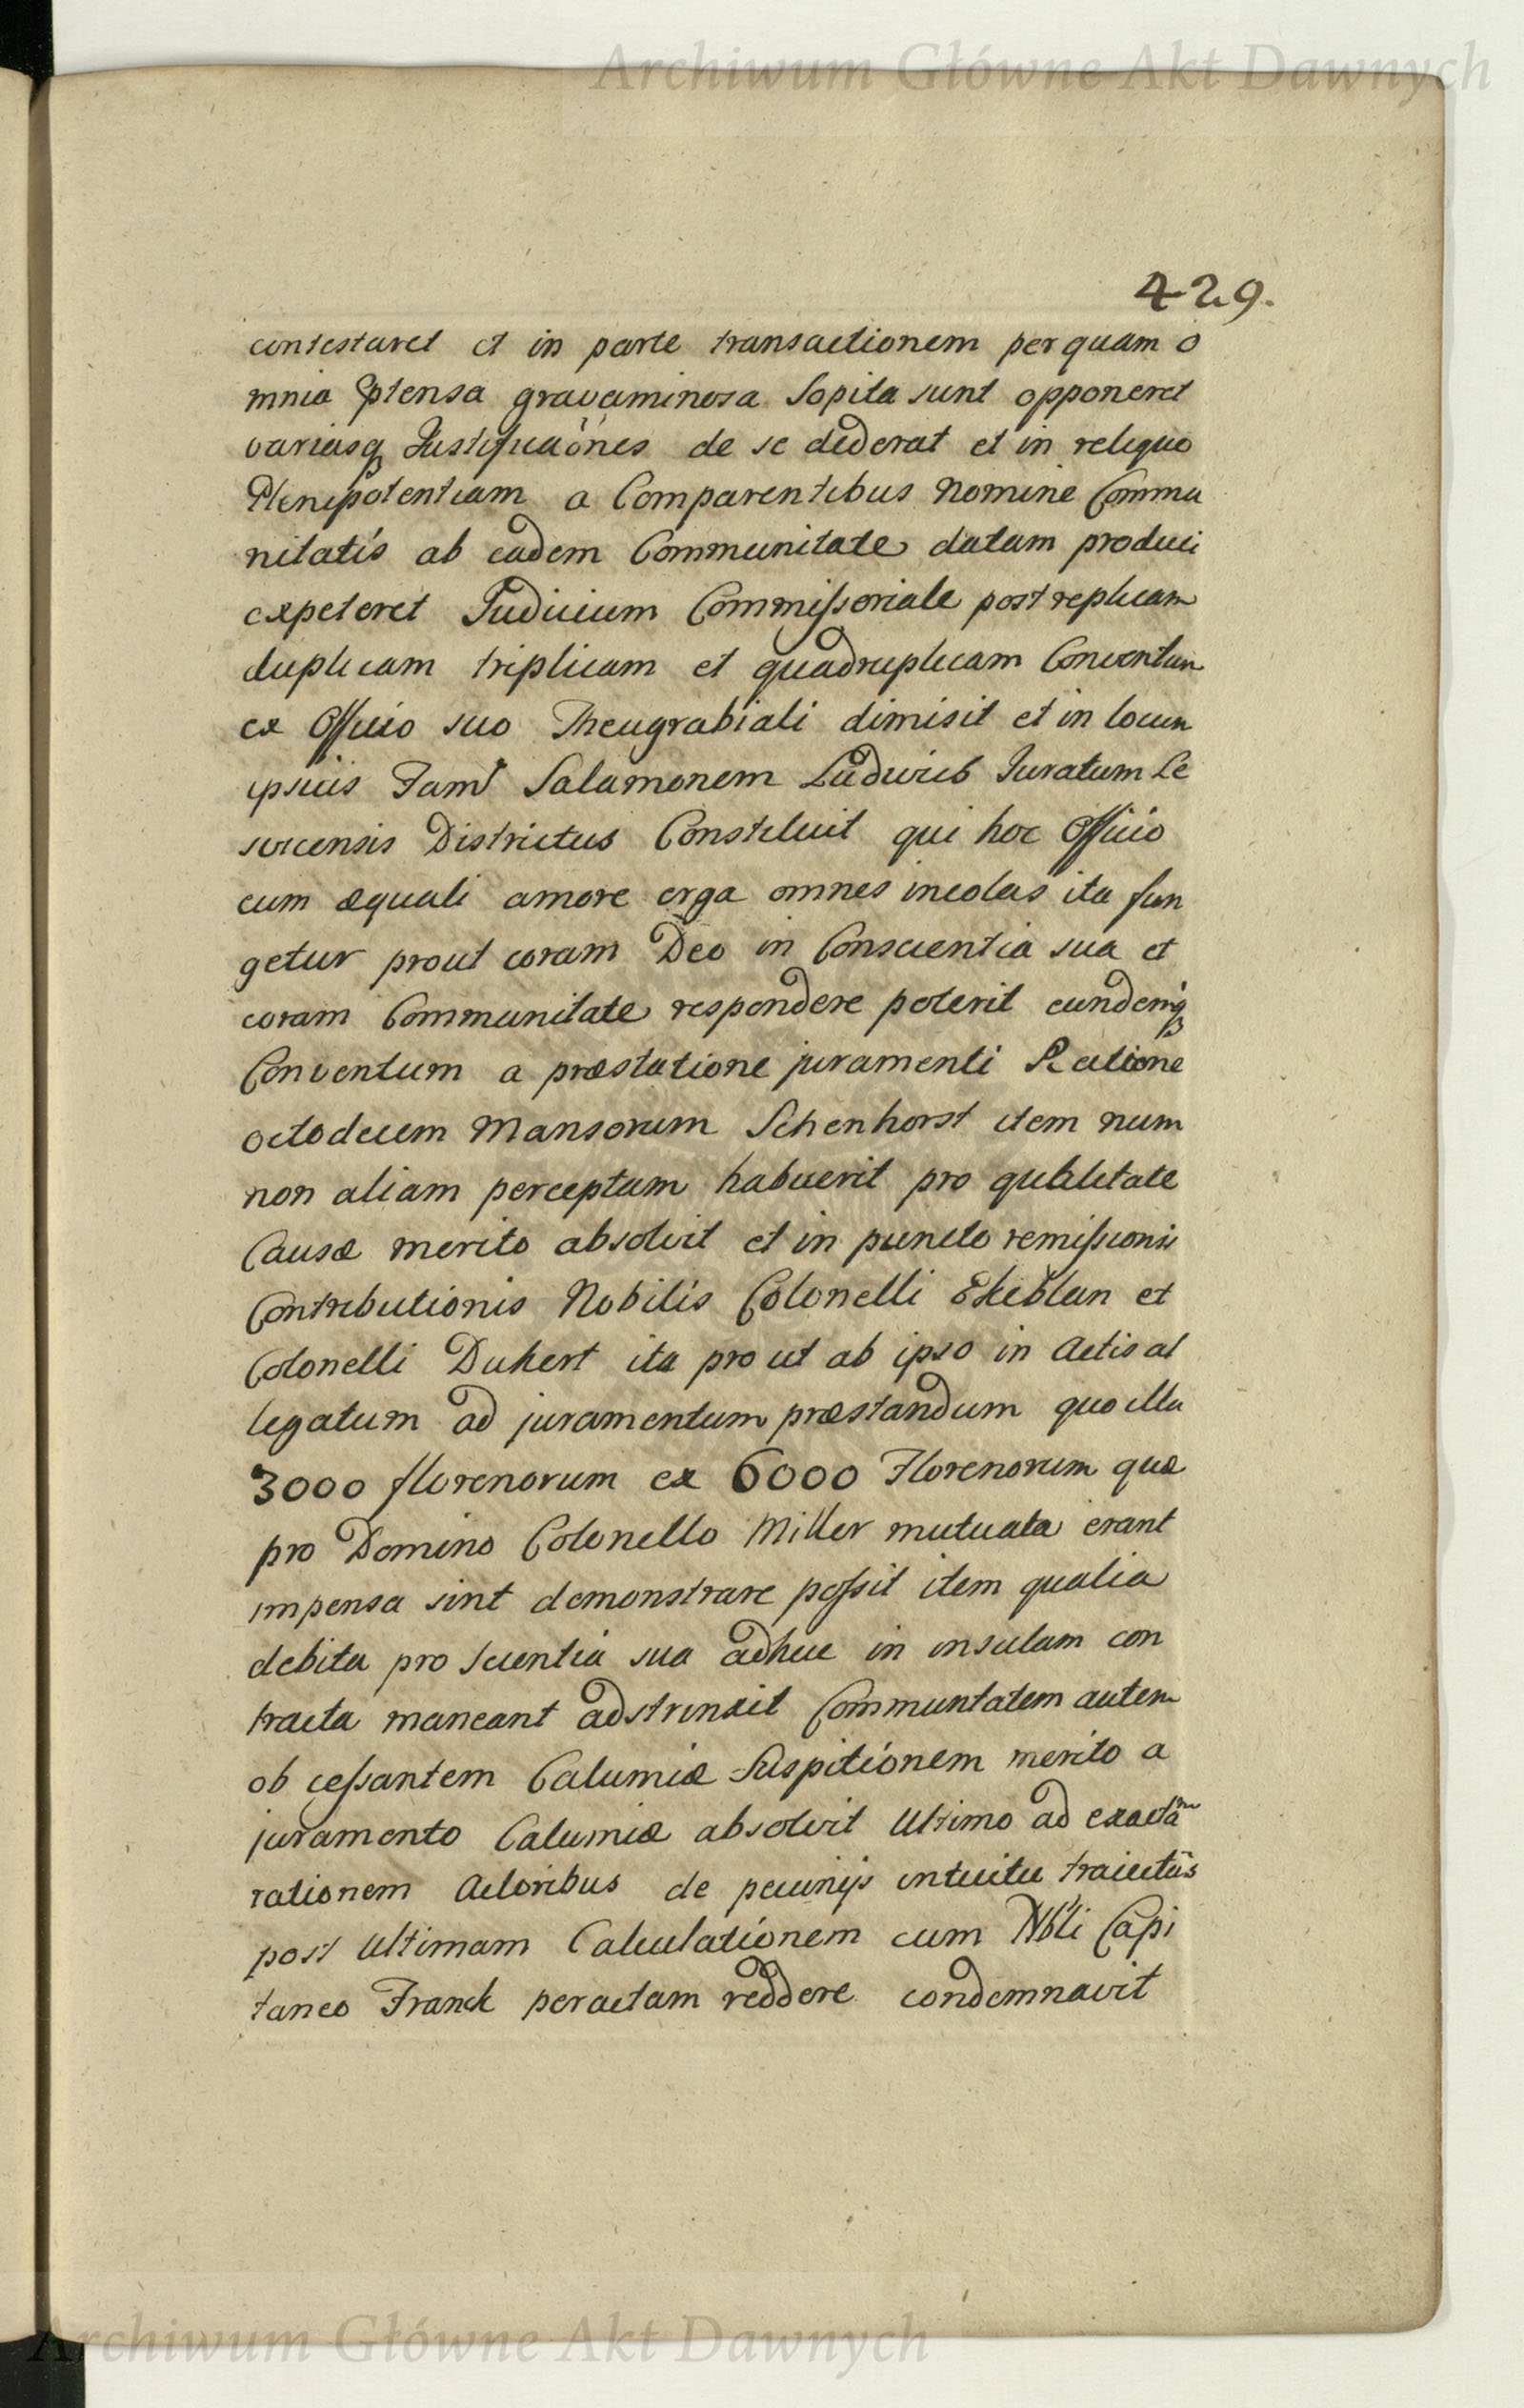 Archiwum Główne Akt Dawnych
429.
contestaret et in parte transactionem per quam o
mnia Ptensa gravaminosa Sopita sunt opponeret
variasq Justificaönes de se dederat et in reliquo
Plenipotentiam a Comparentibus Nomine Commu
nitatis ab eadem Communitate datam produci
expeteret Judicium Commissoriale post replicam
duplicam triplicam et quadruplicam Conventum
ex Officio suo Theugrabiali dimisit et in locum
ipsius Fam Salamonem Ludwich Juratum Le
sevicensis Districtus Constituit qui hoc Officio
cum æquali amore erga omnes incolas ita fun
getur prout coram Deo in Conscientia sua et
coram Communitate respondere poterit eundemq
Conventum a præstatione juramenti Ratione
octodecem Mansorum Schenhorst item num
non aliam perceptam habuerit pro qualitate
Causæ merito absolvit et in puncto remissionis
Contributionis Nobilis Colonelli Ekeblan et
Colonelli Dukert ita prout ab ipso in Actis al
legatum ad juramentum præstandum quo illa
3000 florenorum ex 6000 Florenorum quæ
pro Domino Colonello Miller mutuata erant
impensa sint demonstrare possit item qualia
debita pro scientia sua adhuc in insulam con
tracta maneant adstrinxit Communtatem autem
ob cessantem Calumiæ Suspitionem merito a
juramento Calumiæ absolvit Ultimo ad exactam
rationem Actoribus de pecunijs intuitu traiectus
post Ultimam Calculationem cum Nbli Capi
taneo Franck peractam reddere condemnavit
Archiwum Główne Akt Dawnych